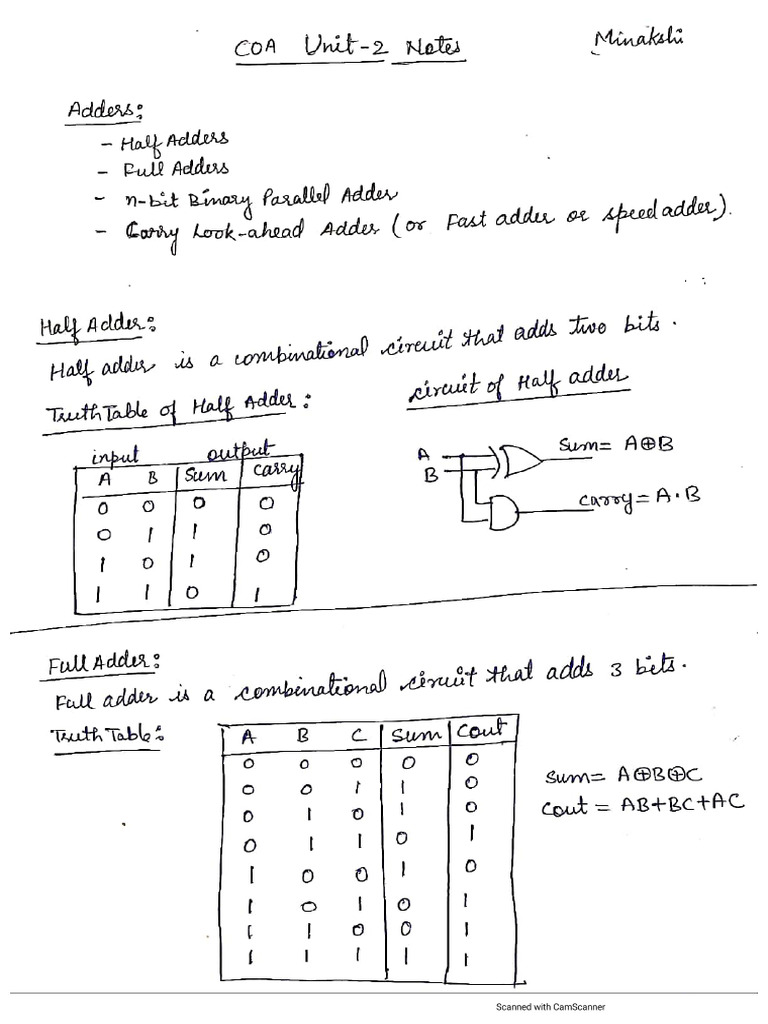 COA Unit-2 Notes
Minakshi
Adders:
- Half Adders
- Full Adders
- n-bit Binary Parallel Adder
- Carry Look-ahead Adder (or Fast adder or speed adder).
Half Adder:
Half adder is a combinational circuit that adds two bits.
Truth Table of Half Adder:
input output
A B Sum carry
0 0 0 0
0 1 1 0
1 0 1 0
1 1 0 1
circuit of Half adder
A
B
Sum= A⊕B
carry= A·B
Full Adder:
Full adder is a combinational circuit that adds 3 bits.
Truth Table:
A B C Sum Cout
0 0 0 0 0
0 0 1 1 0
0 1 0 1 0
0 1 1 0 1
1 0 0 1 0
1 0 1 0 1
1 1 0 0 1
1 1 1 1 1
Sum= A⊕B⊕C
Cout = AB+BC+AC
Scanned with CamScanner